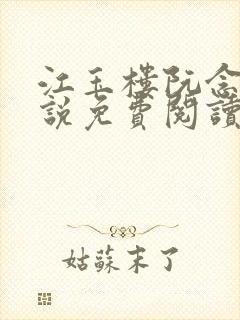 江玉樓阮念
說免費閱讀
姑蘇末了